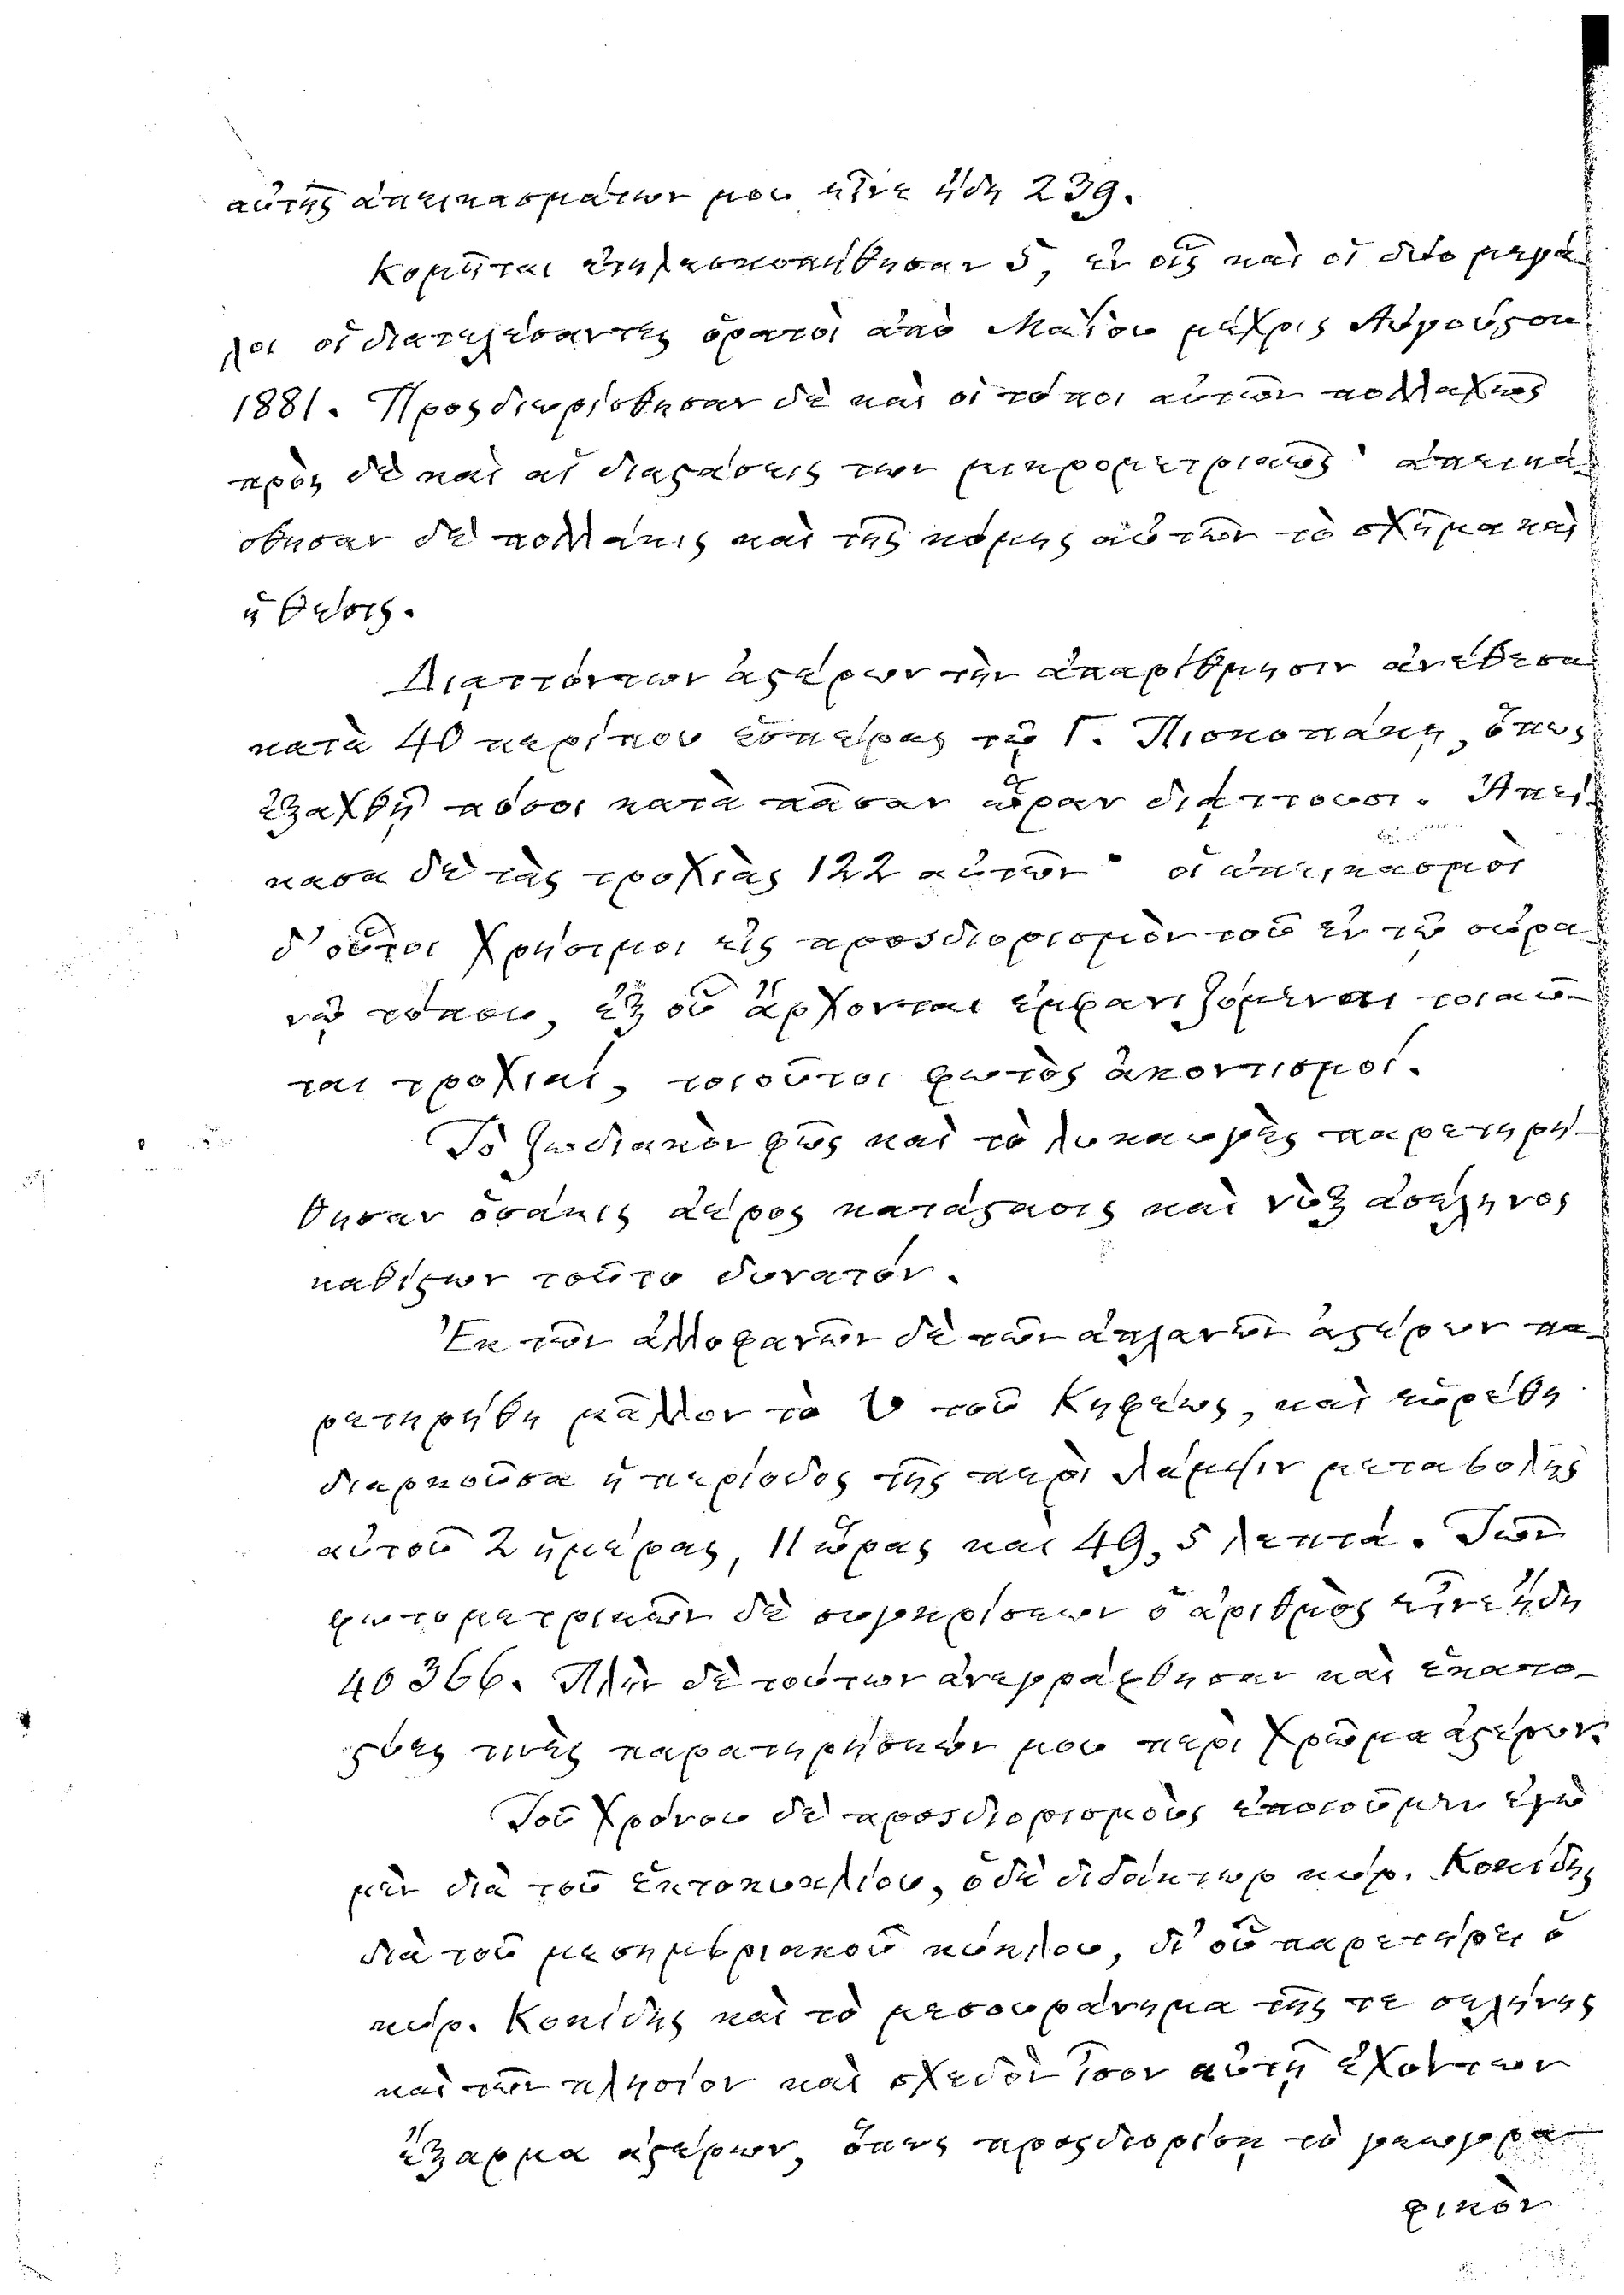 αὐτῆς ἀπεικασμάτων μου εἶνε ἤδη 239.
Κομῆται ἐτηλεσκοπήθησαν 5, ἐν οἷς καὶ οἱ δύο μεγά-
λοι οἱ διατελέσαντες ὁρατοὶ ἀπὸ Μαΐου μέχρις Αὐγούστου
1881. Προςδιωρίσθησαν δὲ καὶ οἱ τόποι αὐτῶν πολλαχῶς
πρὸς δὲ καὶ αἱ διαστάσεις των μικρομετρικῶς· ἀπεικά-
σθησαν δὲ πολλάκις καὶ τῆς κόμης αὐτῶν τὸ σχῆμα καὶ
ἡ θέσις.
Διαττόντων ἀστέρων τὴν ἀπαρίθμησιν ἀνέθεσα
κατὰ 40 περίπου ἑσπέρας τῷ Γ. Πισκοπάκῃ, ὅπως
ἐξαχθῇ πόσοι κατὰ πᾶσαν ὥραν διᾴττουσι. Ἀπεί-
κασα δὲ τὰς τροχιὰς 122 αὐτῶν· οἱ ἀπεικασμοὶ
δ' οὗτοι χρήσιμοι εἰς προσδιορισμὸν τοῦ ἐν τῷ οὐρα-
νῷ τόπου, ἐξ οὗ ἄρχονται ἐμφανιζόμεναι τοιαῦ-
ται τροχιαί, τοιοῦτοι φωτὸς ἀκοντισμοί.
Τὸ ζωδιακὸν φῶς καὶ τὸ λυκαυγὲς παρετηρή-
θησαν ὁσάκις ἀέρος κατάστασις καὶ νὺξ ἀσέληνος
καθίστων τοῦτο δυνατόν.
Ἐκ τῶν ἀλλοφανῶν δὲ τῶν ἀπλανῶν ἀστέρων πα-
ρετηρήθη μᾶλλον τὸ U τοῦ Κηφέως, καὶ εὑρέθη
διαρκοῦσα ἡ περίοδος τῆς περὶ λάμψιν μεταβολῆς
αὐτοῦ 2 ἡμέρας, 11 ὥρας καὶ 49,5 λεπτά. Τῶν
φωτομετρικῶν δὲ συγκρίσεων ὁ ἀριθμὸς εἶνε ἤδη
40366. Πλὴν δὲ τούτων ἀνεγράφησαν καὶ ἑκατο-
στύες τινὲς παρατηρήσεών μου περὶ χρῶμα ἀστέρων.
Τοῦ χρόνου δὲ προσδιορισμοὺς ἐποιοῦμεν ἐγὼ
μὲν διὰ τοῦ ἑκτοκυκλίου, ὁ δὲ διδάκτωρ κύρ. Κοκίδης
διὰ τοῦ μεσημβριακοῦ κύκλου, δι' οὗ παρετήρει ὁ
κύρ. Κοκίδης καὶ τὸ μεσουράνημα τῆς τε σελήνης
καὶ τῶν πλησίον καὶ σχεδὸν ἴσον αὐτῇ ἐχόντων
ἔξαρμα ἀστέρων, ὅπως προςδιορίσῃ τὸ γεωγρα-
φικὸν